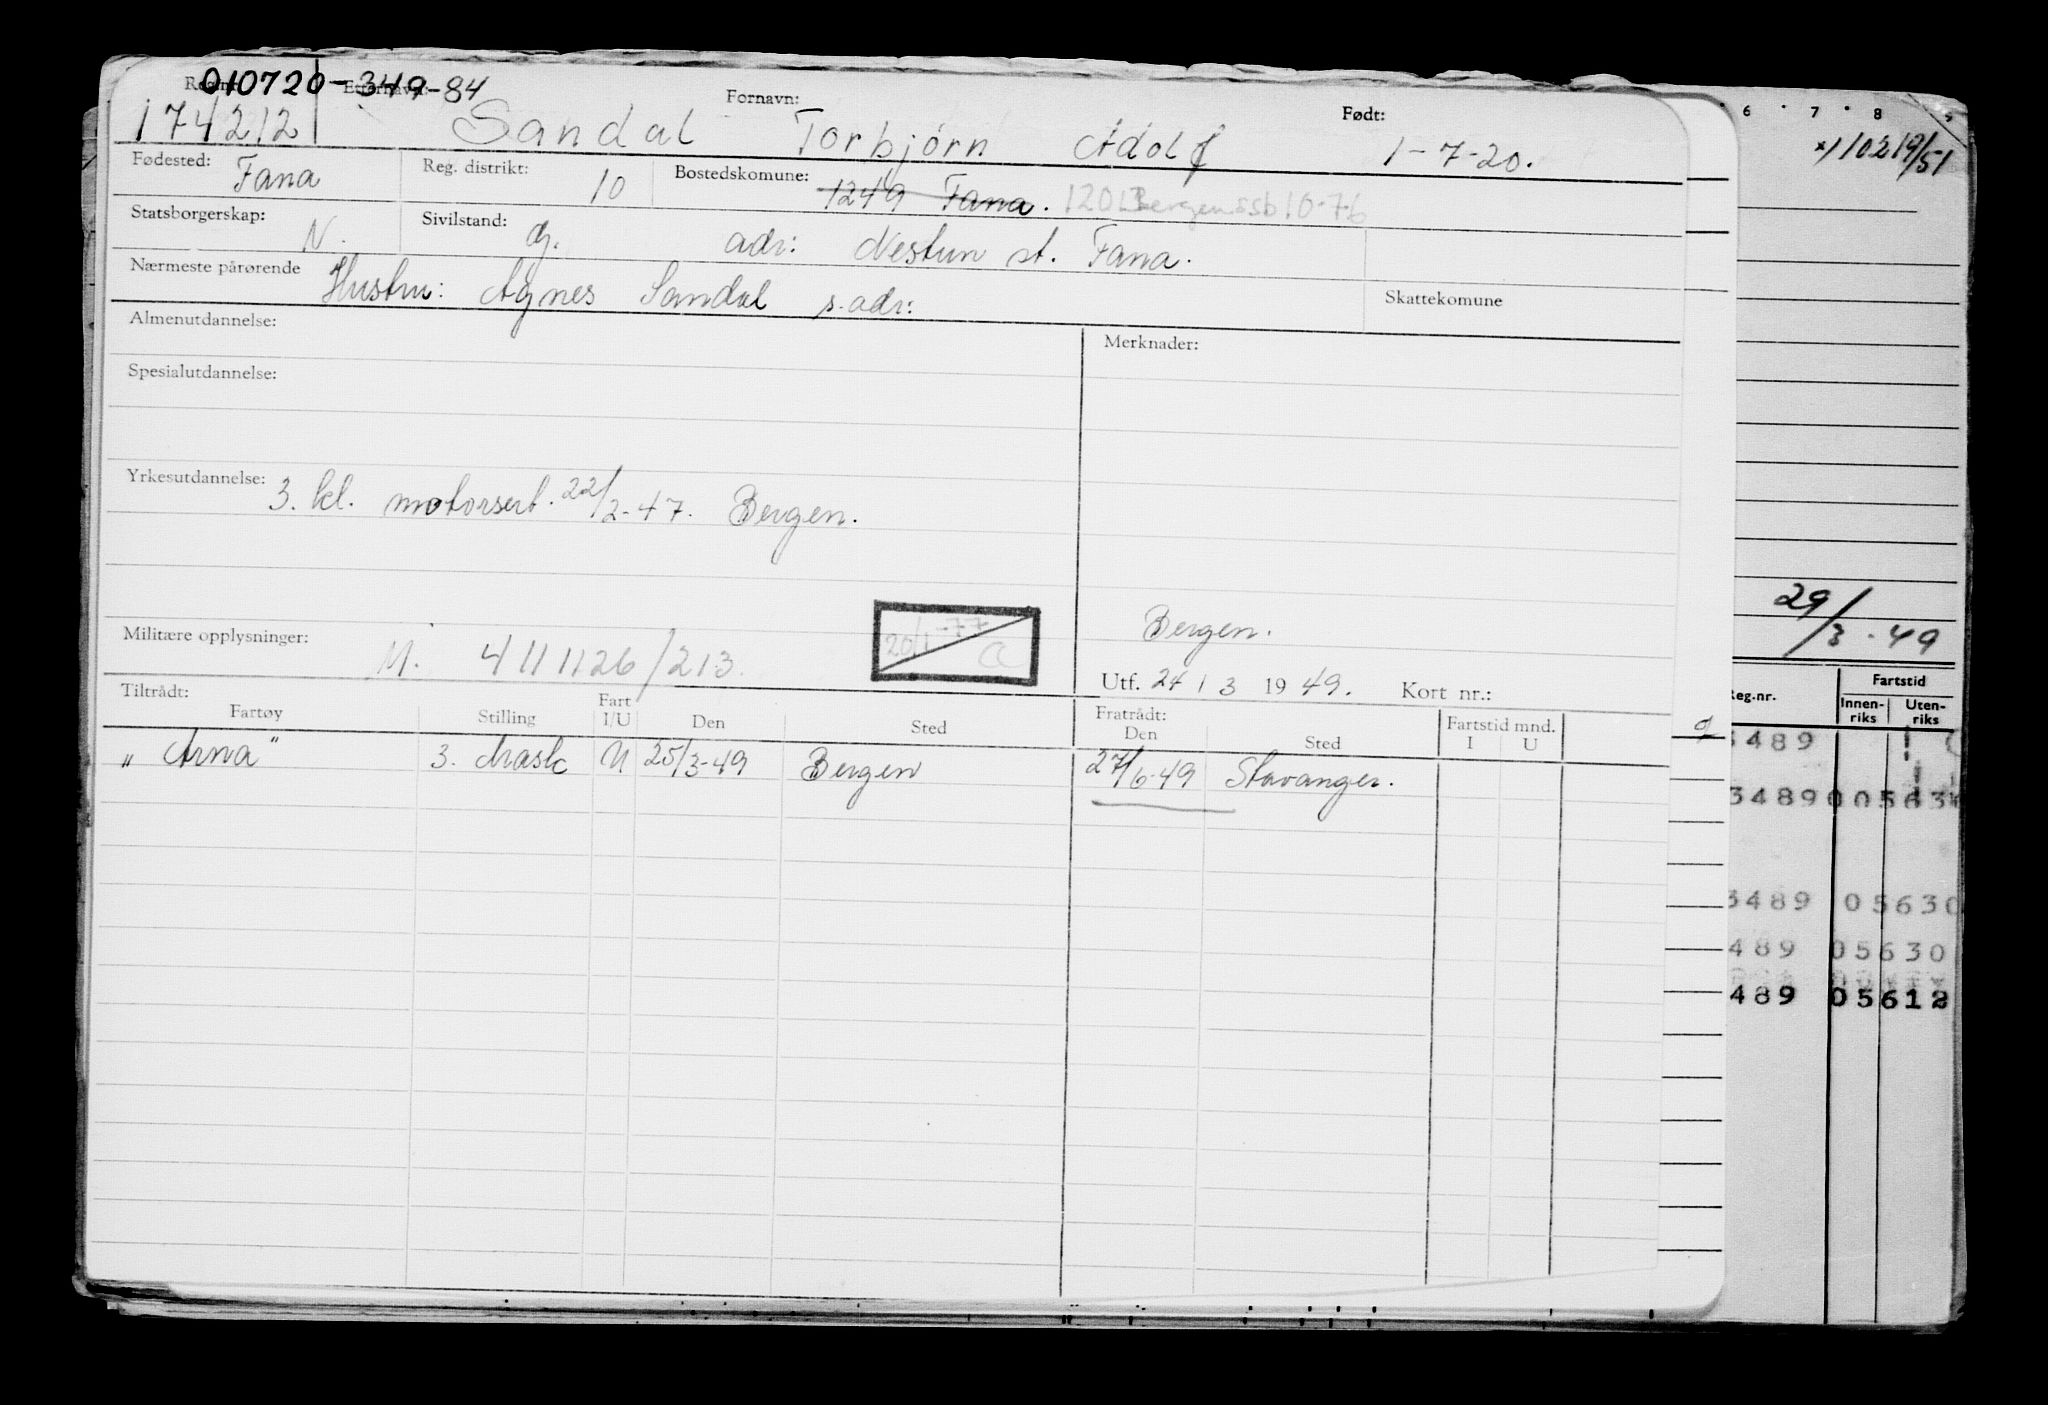 010720-349-84
Reg.nr. Etternavn: Fornavn: Født:
174212 Sandal Torbjørn Adolf 1-7-20.
Fødested: Fana Reg. distrikt: 10 Bostedskomune: 1249 Fana. 1201 Bergen ssb 10-76
Statsborgerskap: N. Sivilstand: g. adr: Nestun st. Fana.
Nærmeste pårørende Hustru: Agnes Sandal s. adr: Skattekomune
Almenutdannelse: Merknader:
Spesialutdannelse:
Yrkesutdannelse: 3. kl. motorsert. 22/2-47. Bergen.
Militære opplysninger: M. 4111126/213. 20/1-77 a Bergen.
Utf. 24 / 3 19 49. Kort nr.:
Tiltrådt: Fratrådt:
Fartøy Stilling Fart I/U Den Sted Den Sted Fartstid mnd. I U
"Arna" 3. Mask U 25/3-49 Bergen 27/6-49 Stavanger.
6 7 8
29/3-49
eg.nr. Fartstid
Innen-riks Uten-riks
489
3489 00563
3489 05630
489 05630
489 05612